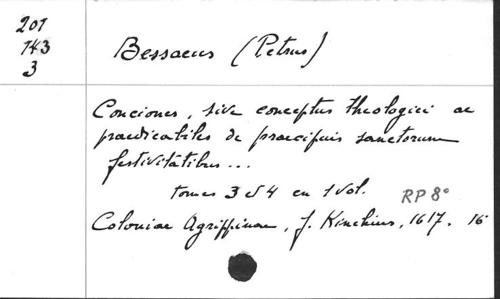 201
143
3
Bessaeus (Petrus)
Conciones, sive conceptus theologici ac
praedicabiles de praecipuis sanctorum
festivitatibus...
tomes 3 & 4 en 1 vol.
RP 8°
Coloniae Agrippinae, J. Kinchius, 1617. 16°